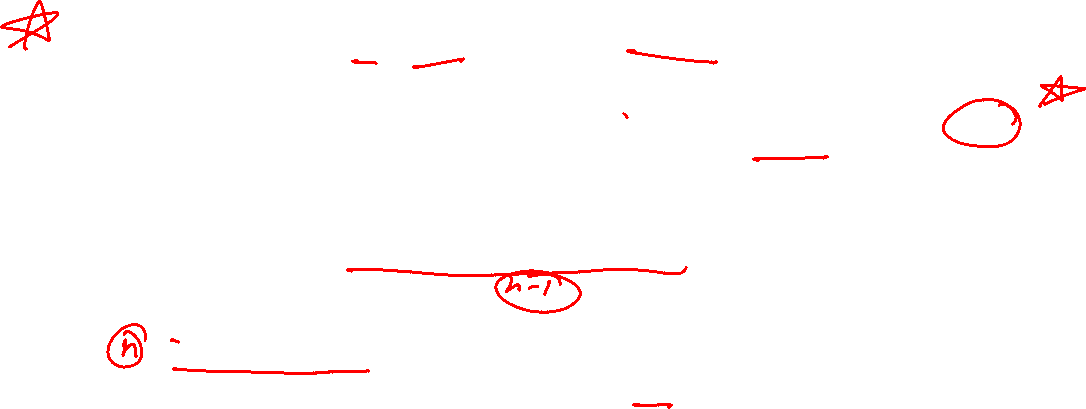 n-1
n